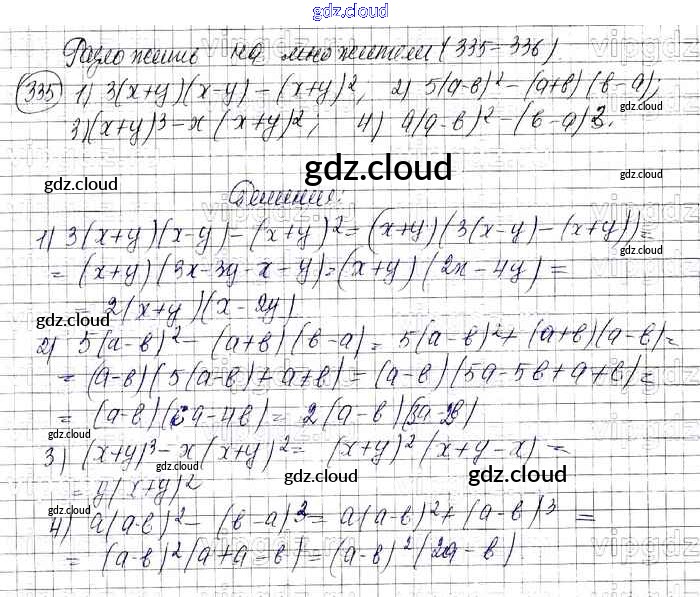 gdz.cloud
Разложить на множители (335-336)
335 1) 3(x+y)(x-y) - (x+y)², 2) 5(a-b)² - (a+b)(b-a);
3) (x+y)³ - x(x+y)²; 4) a(a-b)² - (b-a)³.
gdz.cloud
gdz.cloud
gdz.cloud
gdz.cloud
Решение:
1) 3(x+y)(x-y) - (x+y)² = (x+y)(3(x-y) - (x+y)) =
gdz.cloud
= (x+y)(3x-3y-x-y) = (x+y)(2x-4y) =
= 2(x+y)(x-2y)
gdz.cloud
2) 5(a-b)² - (a+b)(b-a) = 5(a-b)² + (a+b)(a-b) =
= (a-b)(5(a-b)+a+b) = (a-b)(5a-5b+a+b) =
gdz.cloud
= (a-b)(6a-4b) = 2(a-b)(3a-2b)
gdz.cloud
3) (x+y)³ - x(x+y)² = (x+y)²(x+y-x) =
gdz.cloud
gdz.cloud
= y(x+y)²
4) a(a-b)² - (b-a)³ = a(a-b)² + (a-b)³ =
gdz.cloud
gdz.cloud
= (a-b)²(a+a-b) = (a-b)²(2a-b)